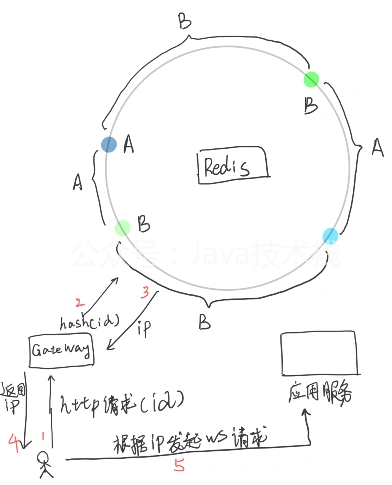 B
B
A
A
A
Redis
B
公众号：Java技术栈
B
2
3
hash(id)
ip
Gateway
返回
ip
http请求(id)
应用服务
4
1
根据ip发起ws请求
5